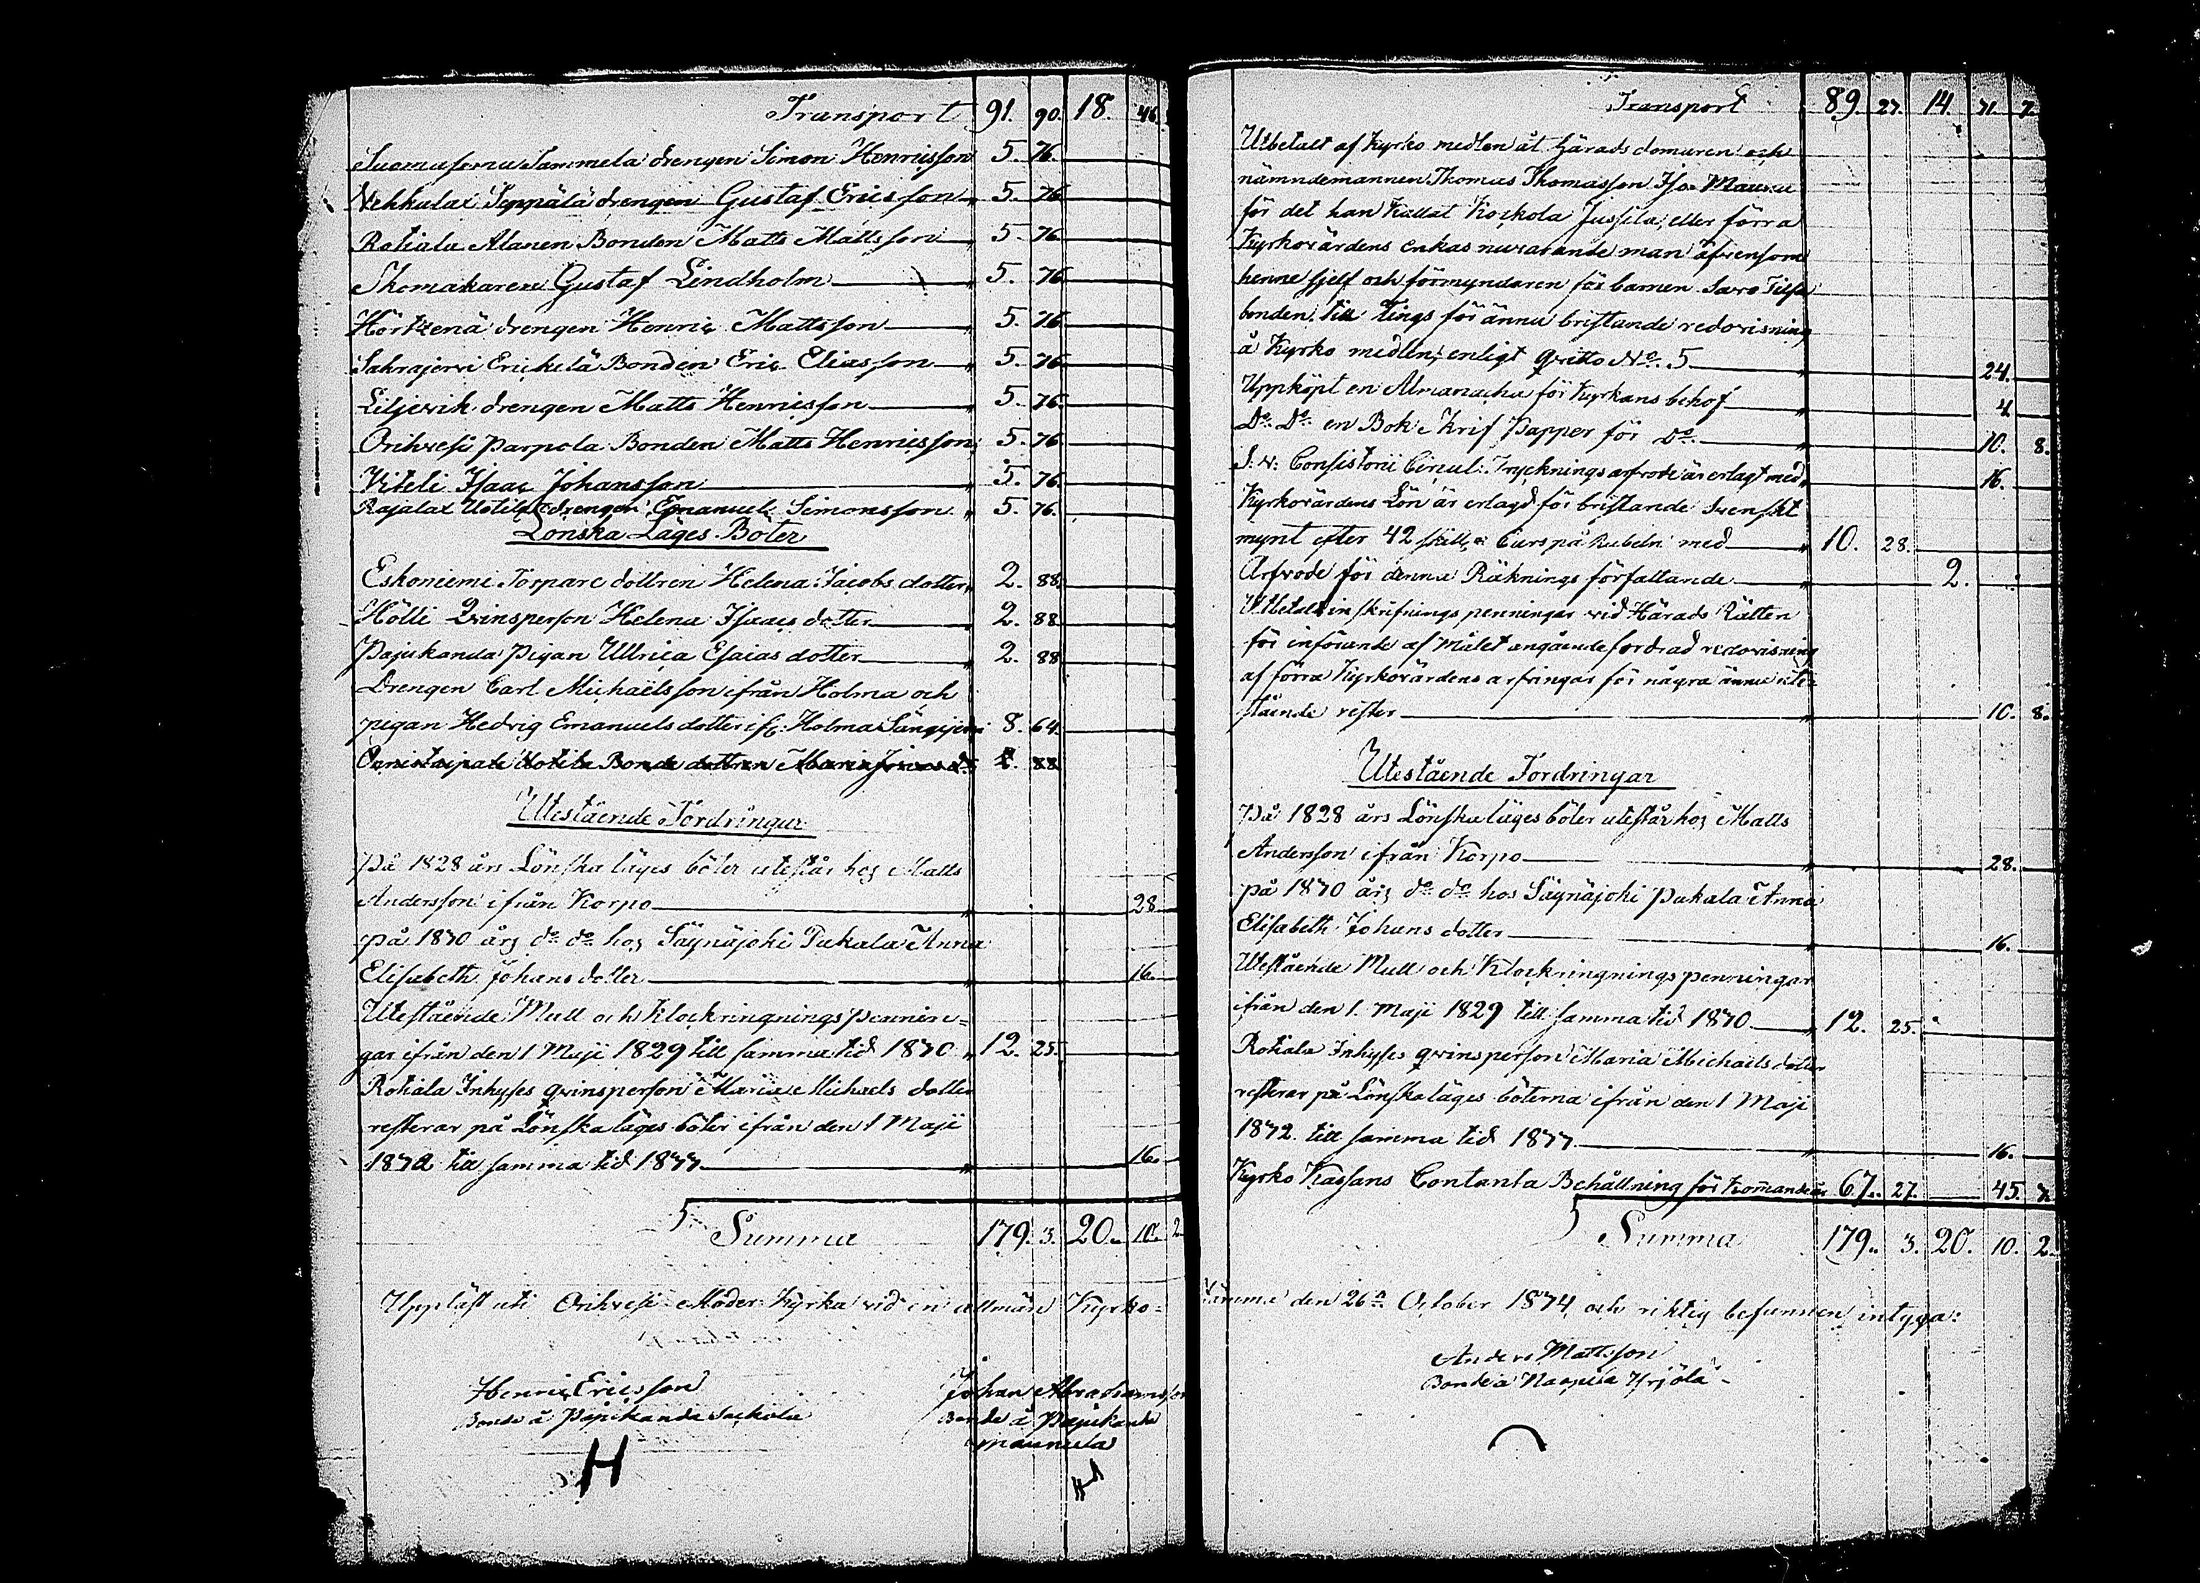 Transport 91. 90. 18. 46.
Suomasema Sammela drengen Simon Henricsson 5. 76.
Vehkalax Seppälä drengen Gustaf Ericsson 5. 76
Rotiala Alanen Bonden Matts Mattsson 5. 76
Skomakaren Gustaf Lindholm 5. 76
drengen Henric Mattsson 5. 76
Sahrajervi Erickilä Bonden Eric Eliasson 5. 76
Liljevik drengen Matts Henricsson 5. 76.
Orihvesi Parpola Bonden Matts Henricsson 5. 76
Viteli Isaac Johansson 5. 76
Rajalax Uotila drengen Emanuel Simonsson 5. 76.
Lönska Läges Böter
Eskoniemi Torpare dottren Helena Jacobs dotter 2. 88
Hölli Qvinsperson Helena Isaacs dotter 2. 88
Pajukanda Pigan Ullrica Esaias dotter 2. 88
Drengen Carl Michaëlsson ifrån Holma och
pigan Hedvig Emanuels dotter ifr. Holma 8. 64.
Uotila Bonde dottren Maria 88
Utestående Fordringar
På 1828 års Lönska läges böter utestår hos Matts
Andersson ifrån Korpo 28
på 1830 års do do hos Säynäjoki Pukala Anna
Elisabeth Johans dotter 16.
Utestående Mull och Klockringnings pennin=
gar ifrån den 1 Maji 1829 till samma tid 1830 12. 25.
Rotiala Inhyses qvinsperson Maria Michaels dotter
resterar på Lönska läges böter ifrån den 1 Maji
1832 till samma tid 1833 16.
Summa 179. 3. 20. 10. 2
Uppläst uti Orihvesi Moder Kyrka vid en allmän Kyrko=
Henric Ericsson
Bonde å Pajukanda
H
Johan Abrahamsson
Bonde å Pajukanda
Maunula
Transport 89. 27. 14. 71. 7.
Utbetalt af Kyrko medlen åt Härads domaren och
nämndemannen Thomas Thomasson Iso Maunu
för det han Kallat Kockola Jussila, eller förra
Kyrkovärdens enkas nuvarande man äfvensom
henne sjelf och förmyndaren för barnen Savo
bonden, till Tings för ännu bristande redovisning
å Kyrko medlen, enligt qvitto No. 5 24.
Uppköpt en Almanacka för Kyrkans behof 4
Do. Do. en Bok Skrif Papper för Do. 10. 8.
S. v. Consistorii Circul. Trycknings arfvode är erlagt med 16.
Kyrkovärdens Lön är erlagd för bristande Svenskt
mynt efter 42 skill. Curs på Rubeln med 10. 28.
Arfvode för denna Räknings författande 2.
Utbetalt inskrifnings penningar vid Härads Rätten
för införande af målet angående fordrad redovisning
af förra Kyrkovärdens arfvingar för några ännu ute=
stående rester 10. 8.
Utestående Fordringar
På 1828 års Lönska läges böter utestår hos Matts
Andersson ifrån Korpo 28.
på 1830 års do do hos Säynäjoki Pukala Anna
Elisabeth Johans dotter 16.
Utestående Mull och Klockringnings penningar
ifrån den 1. Maji 1829 till samma tid 1830 12. 25.
Rotiala Inhyses qvinsperson Maria Michaels dotter
resterar på Lönska läges böterna ifrån den 1 Maji
1832 till samma tid 1833 16.
Kyrko Kassans Contanta Behållning för kommande år 67. 27. 45. 3.
Summa 179. 3. 20. 10. 2.
stämma den 26te October 1834 och riktig befunnen, intyga:
Anders Mattsson
Bonde å Yrjölä